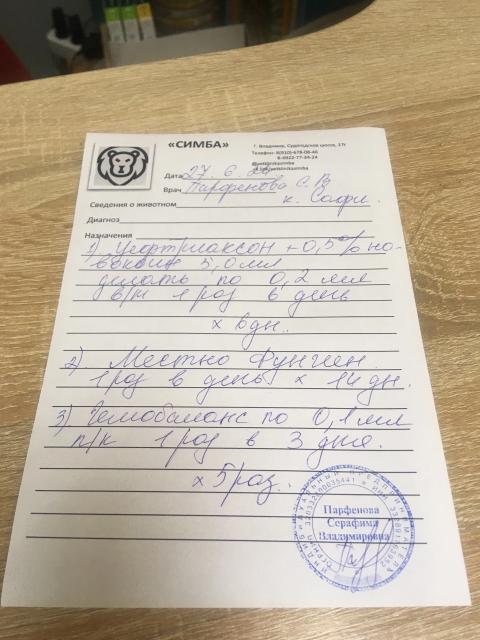 «СИМБА»
г. Владимир, Судогодское шоссе, 17г
Телефон: 8(910)-678-08-46
8-4922-77-34-24
Дата 27. 6.
Врач Парфенова С. В
Сведения о животном к. Софи.
Диагноз
Назначения
1) Цефтриаксон + 0,5% но-
вокаин 5,0 мл
делать по 0,2 мл
в/м 1 раз в день
2) Местно Фунгиен
1 раз в день х 14 дн.
3) Гемобаланс по 0,1 мл
п/к 1 раз в 3 дня.
х 5 раз.
ИНДИВИДУАЛЬНЫЙ ПРЕДПРИНИМАТЕЛЬ
Парфенова
Серафима
Владимировна